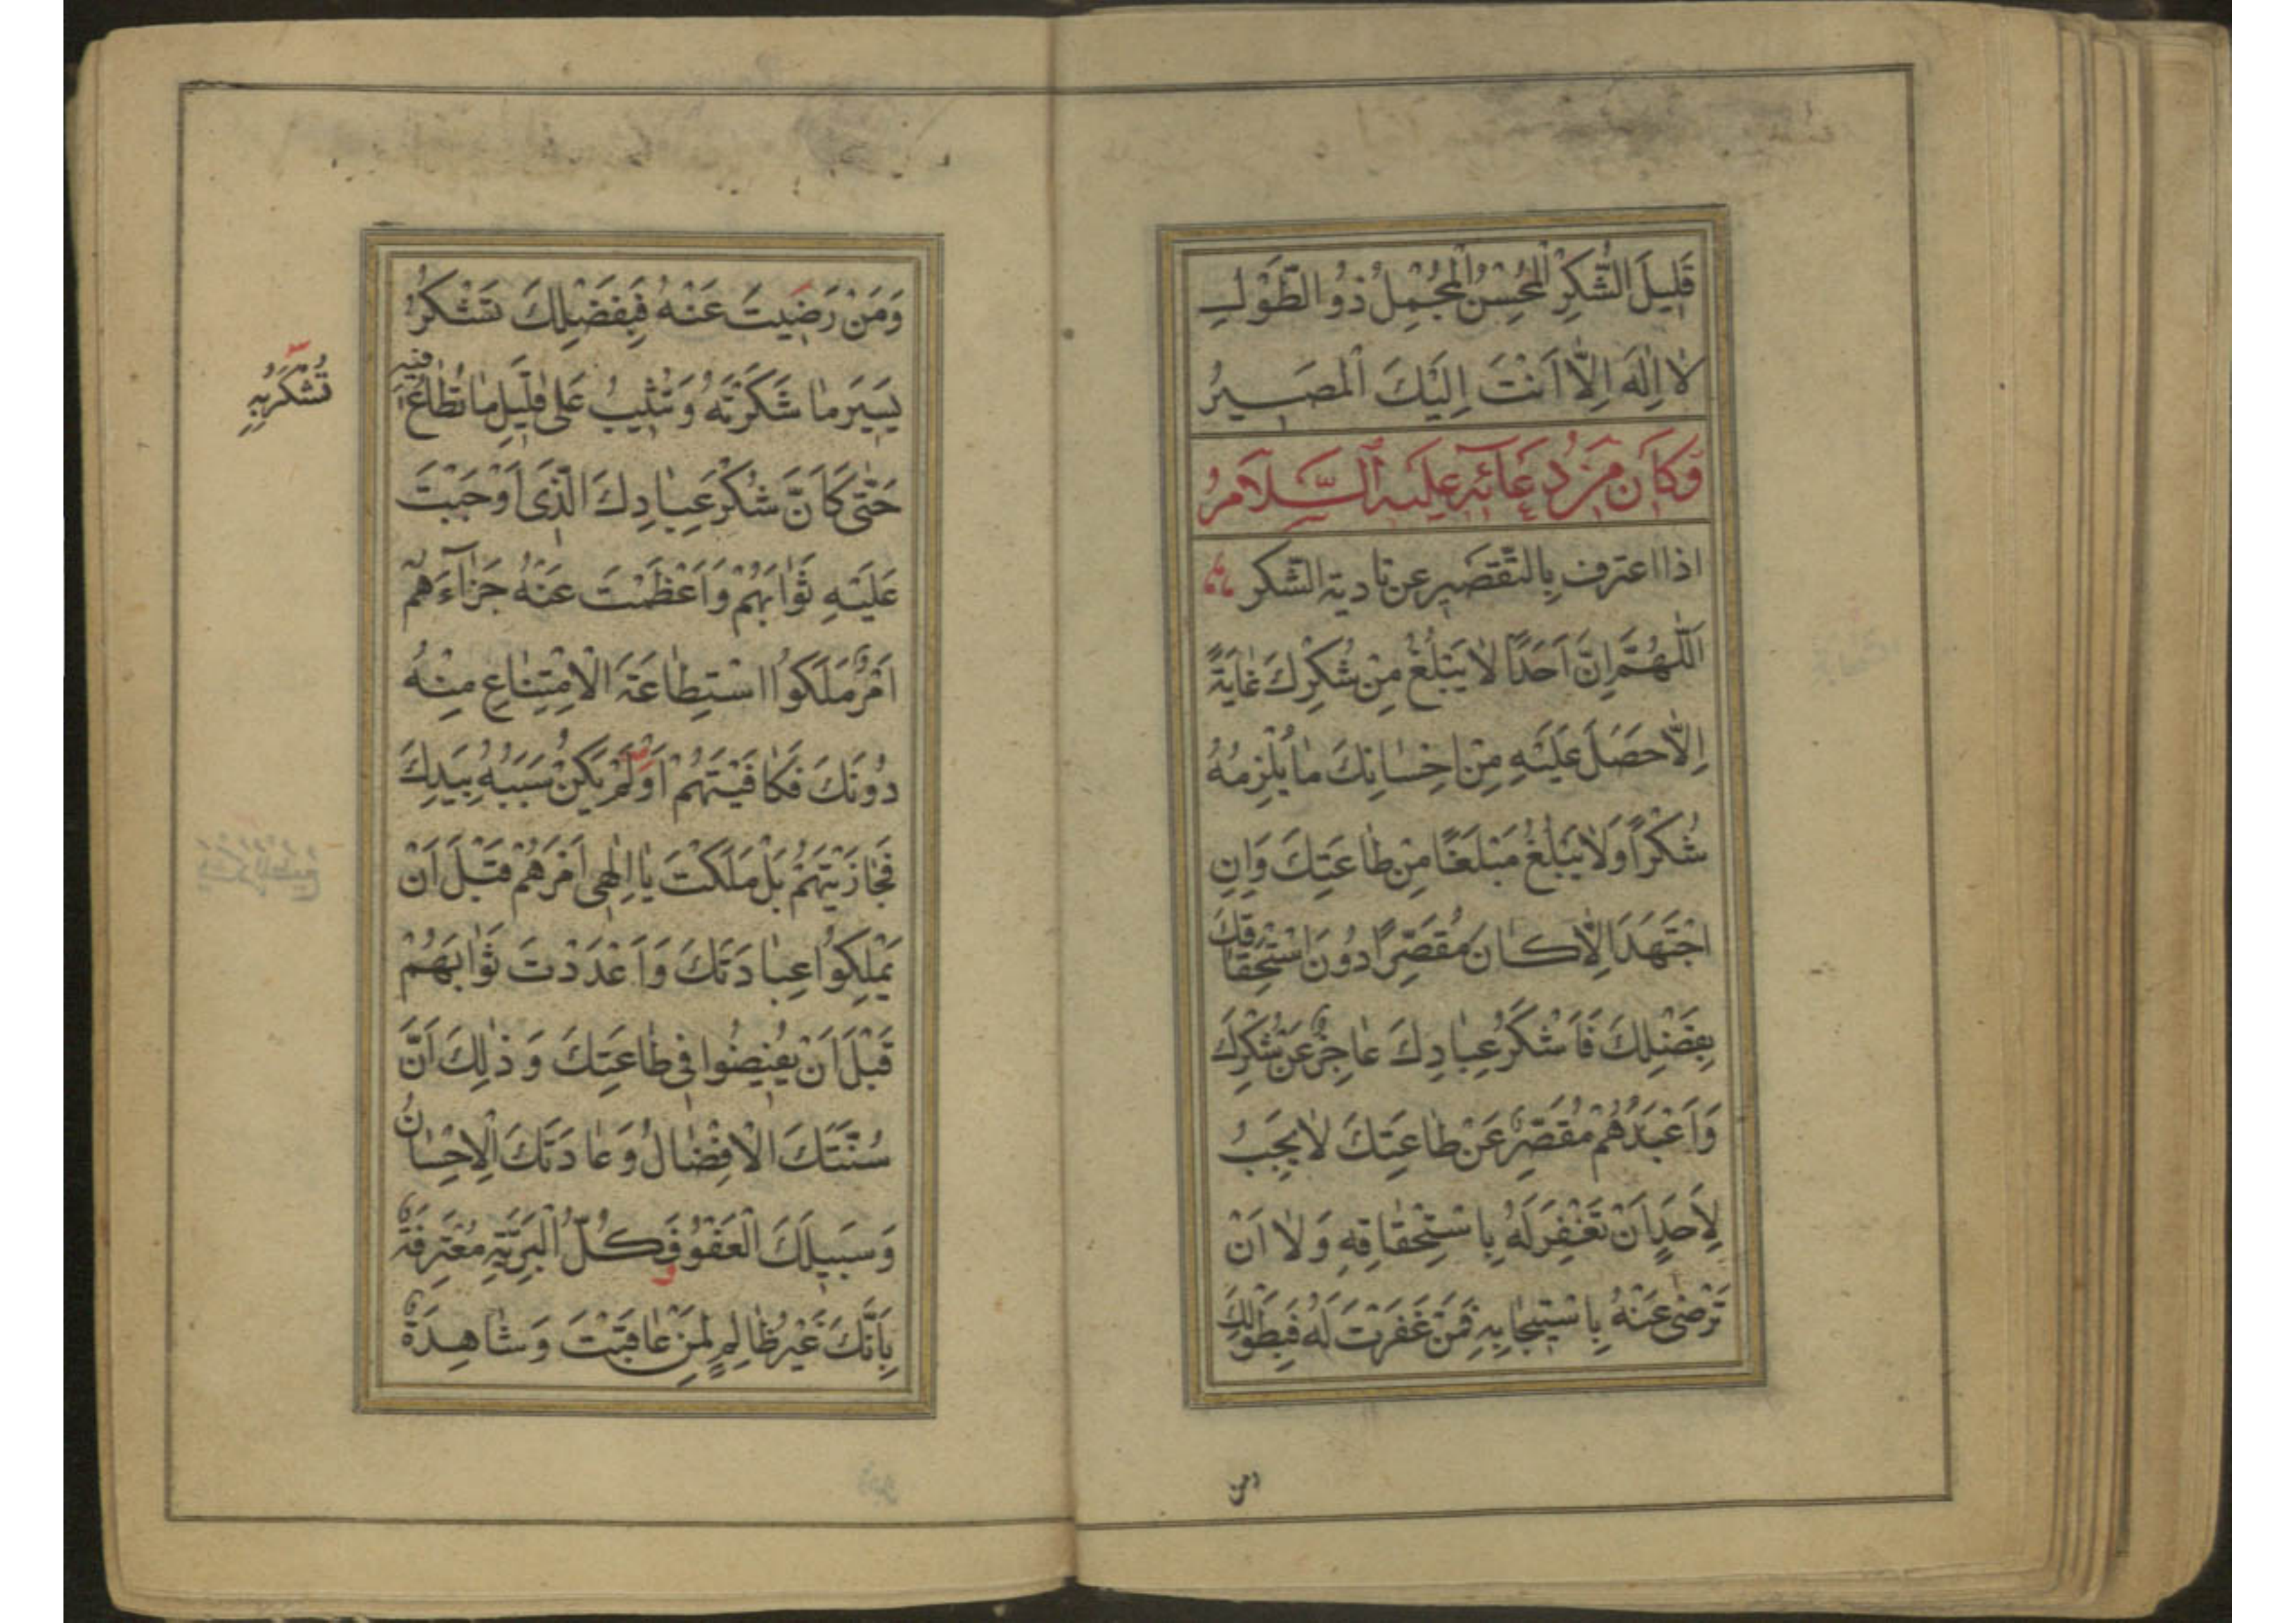 قَلِيلَ الشُّكْرِ الْمُحْسِنُ الْمُجْمِلُ ذُو الطَّوْلِ
لَا إِلٰهَ إِلَّا أَنْتَ إِلَيْكَ الْمَصِيرُ
وَكَانَ مِنْ دُعَائِهِ عَلَيْهِ السَّلَامُ
اذا اعترف بِالتَّقْصِيرِ عن تادية الشكر
اَللّٰهُمَّ إِنَّ أَحَدًا لَا يَبْلُغُ مِنْ شُكْرِكَ غَايَةً
إِلَّا حَصَلَ عَلَيْهِ مِنْ إِحْسَانِكَ مَا يُلْزِمُهُ
شُكْرًا وَلَا يَبْلُغُ مَبْلَغًا مِنْ طَاعَتِكَ وَإِنِ
اجْتَهَدَ إِلَّا كَانَ مُقَصِّرًا دُونَ اسْتِحْقَاقِكَ
بِفَضْلِكَ فَأَشْكَرُ عِبَادِكَ عَاجِزٌ عَنْ شُكْرِكَ
وَأَعْبَدُهُمْ مُقَصِّرٌ عَنْ طَاعَتِكَ لَا يَجِبُ
لِأَحَدٍ أَنْ تَغْفِرَ لَهُ بِاسْتِحْقَاقِهِ وَلَا أَنْ
تَرْضٰى عَنْهُ بِاسْتِيجَابِهِ فَمَنْ غَفَرْتَ لَهُ فَبِطَوْلِكَ
ومن
وَمَنْ رَضِيتَ عَنْهُ فَبِفَضْلِكَ تَشْكُرُ
يَسِيرَ مَا شَكَرْتَهُ وَتُثِيبُ عَلٰى قَلِيلِ مَا تُطَاعُ فِيهِ
تُشْكَرُ بِهِ
حَتّٰى كَأَنَّ شُكْرَ عِبَادِكَ الَّذِي أَوْجَبْتَ
عَلَيْهِ ثَوَابَهُمْ وَأَعْظَمْتَ عَنْهُ جَزَآءَهُمْ
أَمْرٌ مَلَكُوا اسْتِطَاعَةَ الْاِمْتِنَاعِ مِنْهُ
دُونَكَ فَكَافَيْتَهُمْ أَوْ لَمْ يَكُنْ سَبَبُهُ بِيَدِكَ
فَجَازَيْتَهُمْ بَلْ مَلَكْتَ يَا إِلٰهِي أَمْرَهُمْ قَبْلَ أَنْ
يَمْلِكُوا عِبَادَتَكَ وَأَعْدَدْتَ ثَوَابَهُمْ
قَبْلَ أَنْ يُفِيضُوا فِي طَاعَتِكَ وَذٰلِكَ أَنَّ
سُنَّتَكَ الْإِفْضَالُ وَعَادَتَكَ الْإِحْسَانُ
وَسَبِيلَكَ الْعَفْوُ فَكُلُّ الْبَرِيَّةِ مُعْتَرِفَةٌ
بِأَنَّكَ غَيْرُ ظَالِمٍ لِمَنْ عَاقَبْتَ وَشَاهِدَةٌ